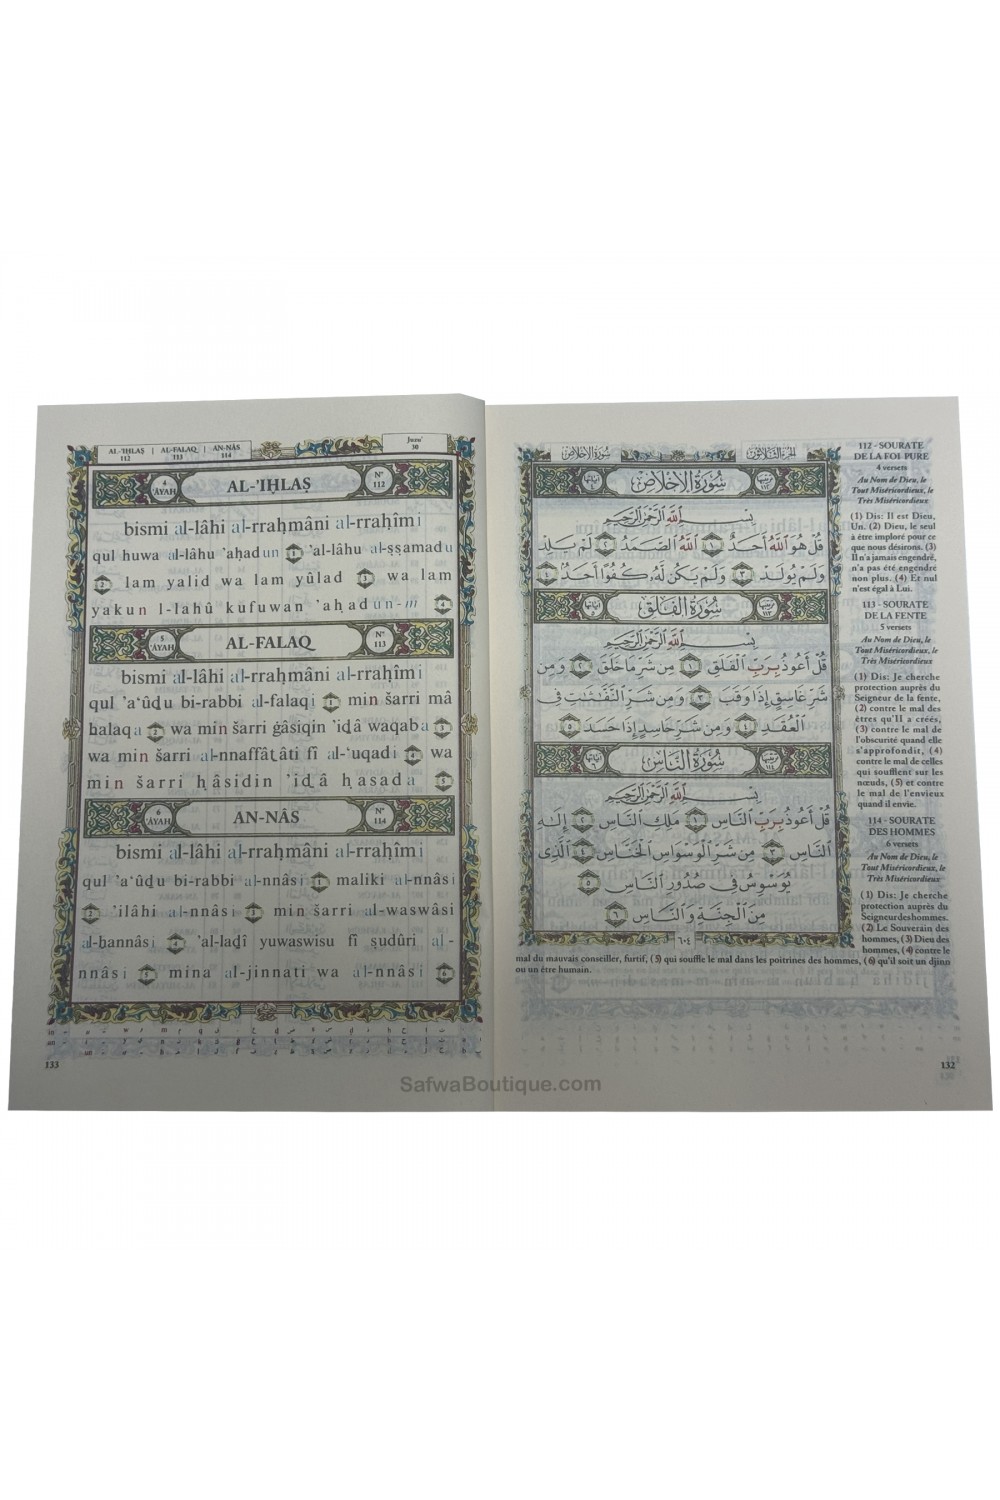 AL-'IḪLAṢ | AL-FALAQ | AN-NÂS
112 113 114
Juzu'
30
4
'ÂYAH
AL-'IḪLAṢ
N°
112
bismi al-lâhi al-rraḥmâni al-rraḥîmi
qul huwa al-lâhu 'aḥadun 1 'al-lâhu al-ṣṣamadu
2 lam yalid wa lam yûlad 3 wa lam
yakun l-lahû kufuwan 'aḥadun-m 4
5
'ÂYAH
AL-FALAQ
N°
113
bismi al-lâhi al-rraḥmâni al-rraḥîmi
qul 'a'ûḏu bi-rabbi al-falaqi 1 min šarri mâ
ḫalaqa 2 wa min šarri ġâsiqin 'iḏâ waqaba 3
wa min šarri al-nnaffâṯâti fî al-'uqadi 4 wa
min šarri ḥâsidin 'iḏâ ḥasada 5
6
'ÂYAH
AN-NÂS
N°
114
bismi al-lâhi al-rraḥmâni al-rraḥîmi
qul 'a'ûḏu bi-rabbi al-nnâsi 1 maliki al-nnâsi
2 'ilâhi al-nnâsi 3 min šarri al-waswâsi
al-ḫannâsi 4 'al-laḏî yuwaswisu fî ṣudûri al-
nnâsi 5 mina al-jinnati wa al-nnâsi 6
133
سورة الإخلاص
الجزء الثلاثون
سُورَةُ الإِخْلَاصِ
بِسْمِ اللَّهِ الرَّحْمَٰنِ الرَّحِيمِ
قُلْ هُوَ اللَّهُ أَحَدٌ ١ اللَّهُ الصَّمَدُ ٢ لَمْ يَلِدْ
وَلَمْ يُولَدْ ٣ وَلَمْ يَكُن لَّهُ كُفُوًا أَحَدٌ ٤
سُورَةُ الفَلَقِ
بِسْمِ اللَّهِ الرَّحْمَٰنِ الرَّحِيمِ
قُلْ أَعُوذُ بِرَبِّ الْفَلَقِ ١ مِن شَرِّ مَا خَلَقَ ٢ وَمِن
شَرِّ غَاسِقٍ إِذَا وَقَبَ ٣ وَمِن شَرِّ النَّفَّاثَاتِ فِي
الْعُقَدِ ٤ وَمِن شَرِّ حَاسِدٍ إِذَا حَسَدَ ٥
سُورَةُ النَّاسِ
بِسْمِ اللَّهِ الرَّحْمَٰنِ الرَّحِيمِ
قُلْ أَعُوذُ بِرَبِّ النَّاسِ ١ مَلِكِ النَّاسِ ٢ إِلَٰهِ
النَّاسِ ٣ مِن شَرِّ الْوَسْوَاسِ الْخَنَّاسِ ٤ الَّذِي
يُوَسْوِسُ فِي صُدُورِ النَّاسِ ٥
مِنَ الْجِنَّةِ وَالنَّاسِ ٦
٦٠٤
112 - SOURATE
DE LA FOI PURE
4 versets
Au Nom de Dieu, le
Tout Miséricordieux, le
Très Miséricordieux
(1) Dis: Il est Dieu,
Un. (2) Dieu, le seul
à être imploré pour ce
que nous désirons. (3)
Il n'a jamais engendré,
n'a pas été engendré
non plus. (4) Et nul
n'est égal à Lui.
113 - SOURATE
DE LA FENTE
5 versets
Au Nom de Dieu, le
Tout Miséricordieux, le
Très Miséricordieux
(1) Dis: Je cherche
protection auprès du
Seigneur de la fente,
(2) contre le mal des
êtres qu'Il a créés,
(3) contre le mal de
l'obscurité quand elle
s'approfondit, (4)
contre le mal de celles
qui soufflent sur les
nœuds, (5) et contre
le mal de l'envieux
quand il envie.
114 - SOURATE
DES HOMMES
6 versets
Au Nom de Dieu, le
Tout Miséricordieux, le
Très Miséricordieux
(1) Dis: Je cherche
protection auprès du
Seigneur des hommes.
(2) Le Souverain des
hommes, (3) Dieu des
hommes, (4) contre le
mal du mauvais conseiller, furtif, (5) qui souffle le mal dans les poitrines des hommes, (6) qu'il soit un djinn
ou un être humain.
132
SafwaBoutique.com